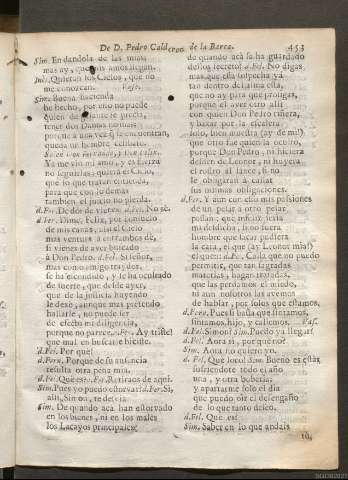 De D. Pedro Calderon de la Barca. 453
Sim. En dandola de las muias
mas ay, que mis amos llegan.
Inès. Quietan los Cielos, que no
me conozcan. Vase.
Sim. Buena hacienda
he hecho, por esto no puede
quien de se precia,
tener dos Damas no mas;
porque à una vez q̃ se encuentran,
queda un hombre
Salen
Ya me vin mi amo, y es fuerza
no seguirlas: quiera el Cielo,
que lo que tratan entienda,
para que con lo demàs
tambien el juicio no pierda.
d. Fel. De dòr de vienes? d. Fer. No sè.
d. Fer. Dime, Felix, por consuelo
de mis canas, assi el Cielo
mas ventura à entrambos dè,
si vienes de aver buscado
à Don Pedro. d. Fel. Si señor,
mas como amigo traydor,
se ha escondido, y se ha ocultado
de suerte, que desde ayer,
que de la justicia huyendo
le dexè, aunque mas pretendo
hallarle, no puede ser
de efecto mi diligencia,
porque no parece. Ay triste!
que mal en buscarle hiciste.
d. Fel. Por què?
d. Fern. Porque de su ausencia
resulta otra pena mia.
d. Fel. Què es? d. Fer. Retiraos de aqui.
Sim. Pues yo puedo estorvar? d. Fer. Si,
alli, Simon, te desvia.
Sim. De quando acà han estorvado
en los bienes, ni en los males
los Lacayos principales?
de quando acà se ha guardado
dellos secreto? d. Fel. No digas
mas, que essa sospecha yà
tan dentro del alma està,
que no ay para què prosigas,
porque el aver otro alli
con quien Don Pedro riñera,
y baxar por la escalera
solo, bien muestra (ay de mi!)
que otro fue quien la ocasiò,
porque Don Pedro, ni hiciera
desden de Leonor, ni huyera
el rostro al lance, si no
le obligàran à callar
sus mismas obligaciones.
d. Fer. Y aun con essas mis passiones
de un pesar à otro pesar
passan; que infeliz seria
mi desdicha, si no fuera
hombre que sacar pudiera
la cara, el que (ay Leonor mia!)
el quien: d. Fe. Calla que no puedo
permitir, que tan sagradas
materias, hagan tratadas,
que las perdamos el miedo,
ni aun nosotros las avemos
de hablar, por solos que estamos.
d. Fern. Pues si basta que sintamos,
sintamos, hijo, y callemos. Vas.
d. Fel. Simon? Sim. Puedo ya llegar?
d. Fel. Aora si, por què no?
Sim. Aora no quiero yo.
d. Fel. Que loco! Sim. Bueno es estàr
sufriendote todo el año
una, y otra boberia;
y apartarme solo el dia
que puedo oìr el desengaño
de lo que tanto deseo.
d. Fel. Què es?
Sim. Saber en lo que andais